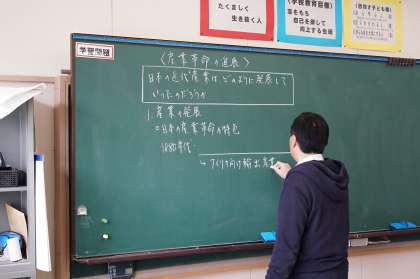 たくましく
生き抜く人
〈学校教育目標〉
志をもち
自己を律して
向上する生徒
学習問題
〈産業革命の進展〉
日本の近代産業は、どのように発展して
いったのだろうか
1. 産業の発展
=日本の産業革命の特色
1880年代:
→アメリカ向け輸出産業